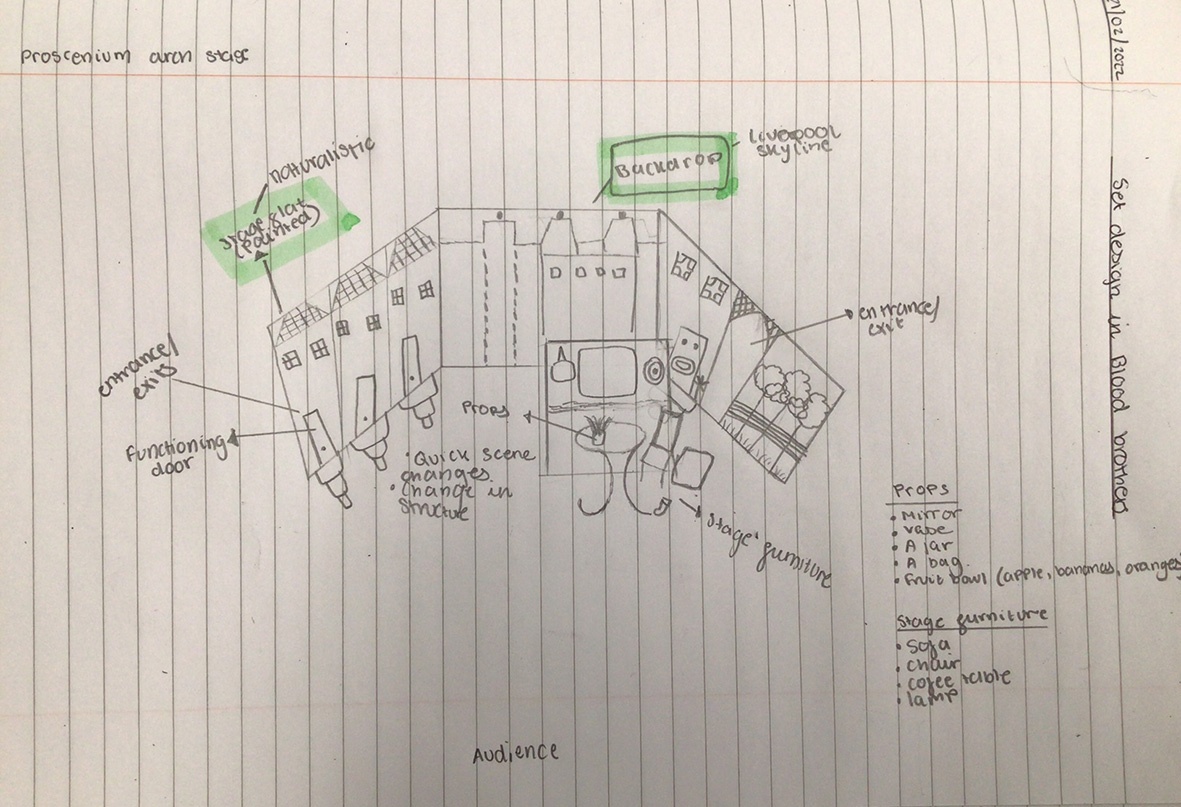 Proscenium arch stage
/02/2022
Set design in Blood brothers
naturalistic
stage flat
(Painted)
Backdrop
Liverpool
skyline
entrance/
exits
functioning
door
entrance/
exit
Props
• Quick scene
changes.
• Change in
structure
stage furniture
Props
• Mirror
• vase
• A jar
• A bag.
• Fruit bowl (apple, bananas, oranges
Stage furniture
• Sofa
• chair
• cofee table
• lamp
Audience